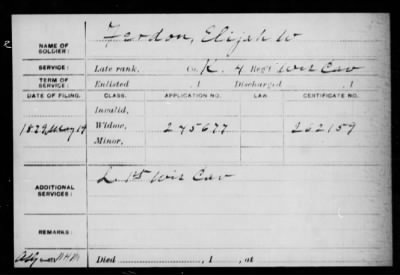 Ferdon, Elijah W
NAME OF SOLDIER:
SERVICE: Late rank, Co. K, 4 Reg't Wis Cav
TERM OF SERVICE: Enlisted , 1 Discharged , 1
DATE OF FILING. CLASS. APPLICATION NO. LAW. CERTIFICATE NO.
Invalid,
May Widow, 275677 262159
Minor,
ADDITIONAL SERVICES: L. 1st Wis Cav
REMARKS:
Died , 1 , at